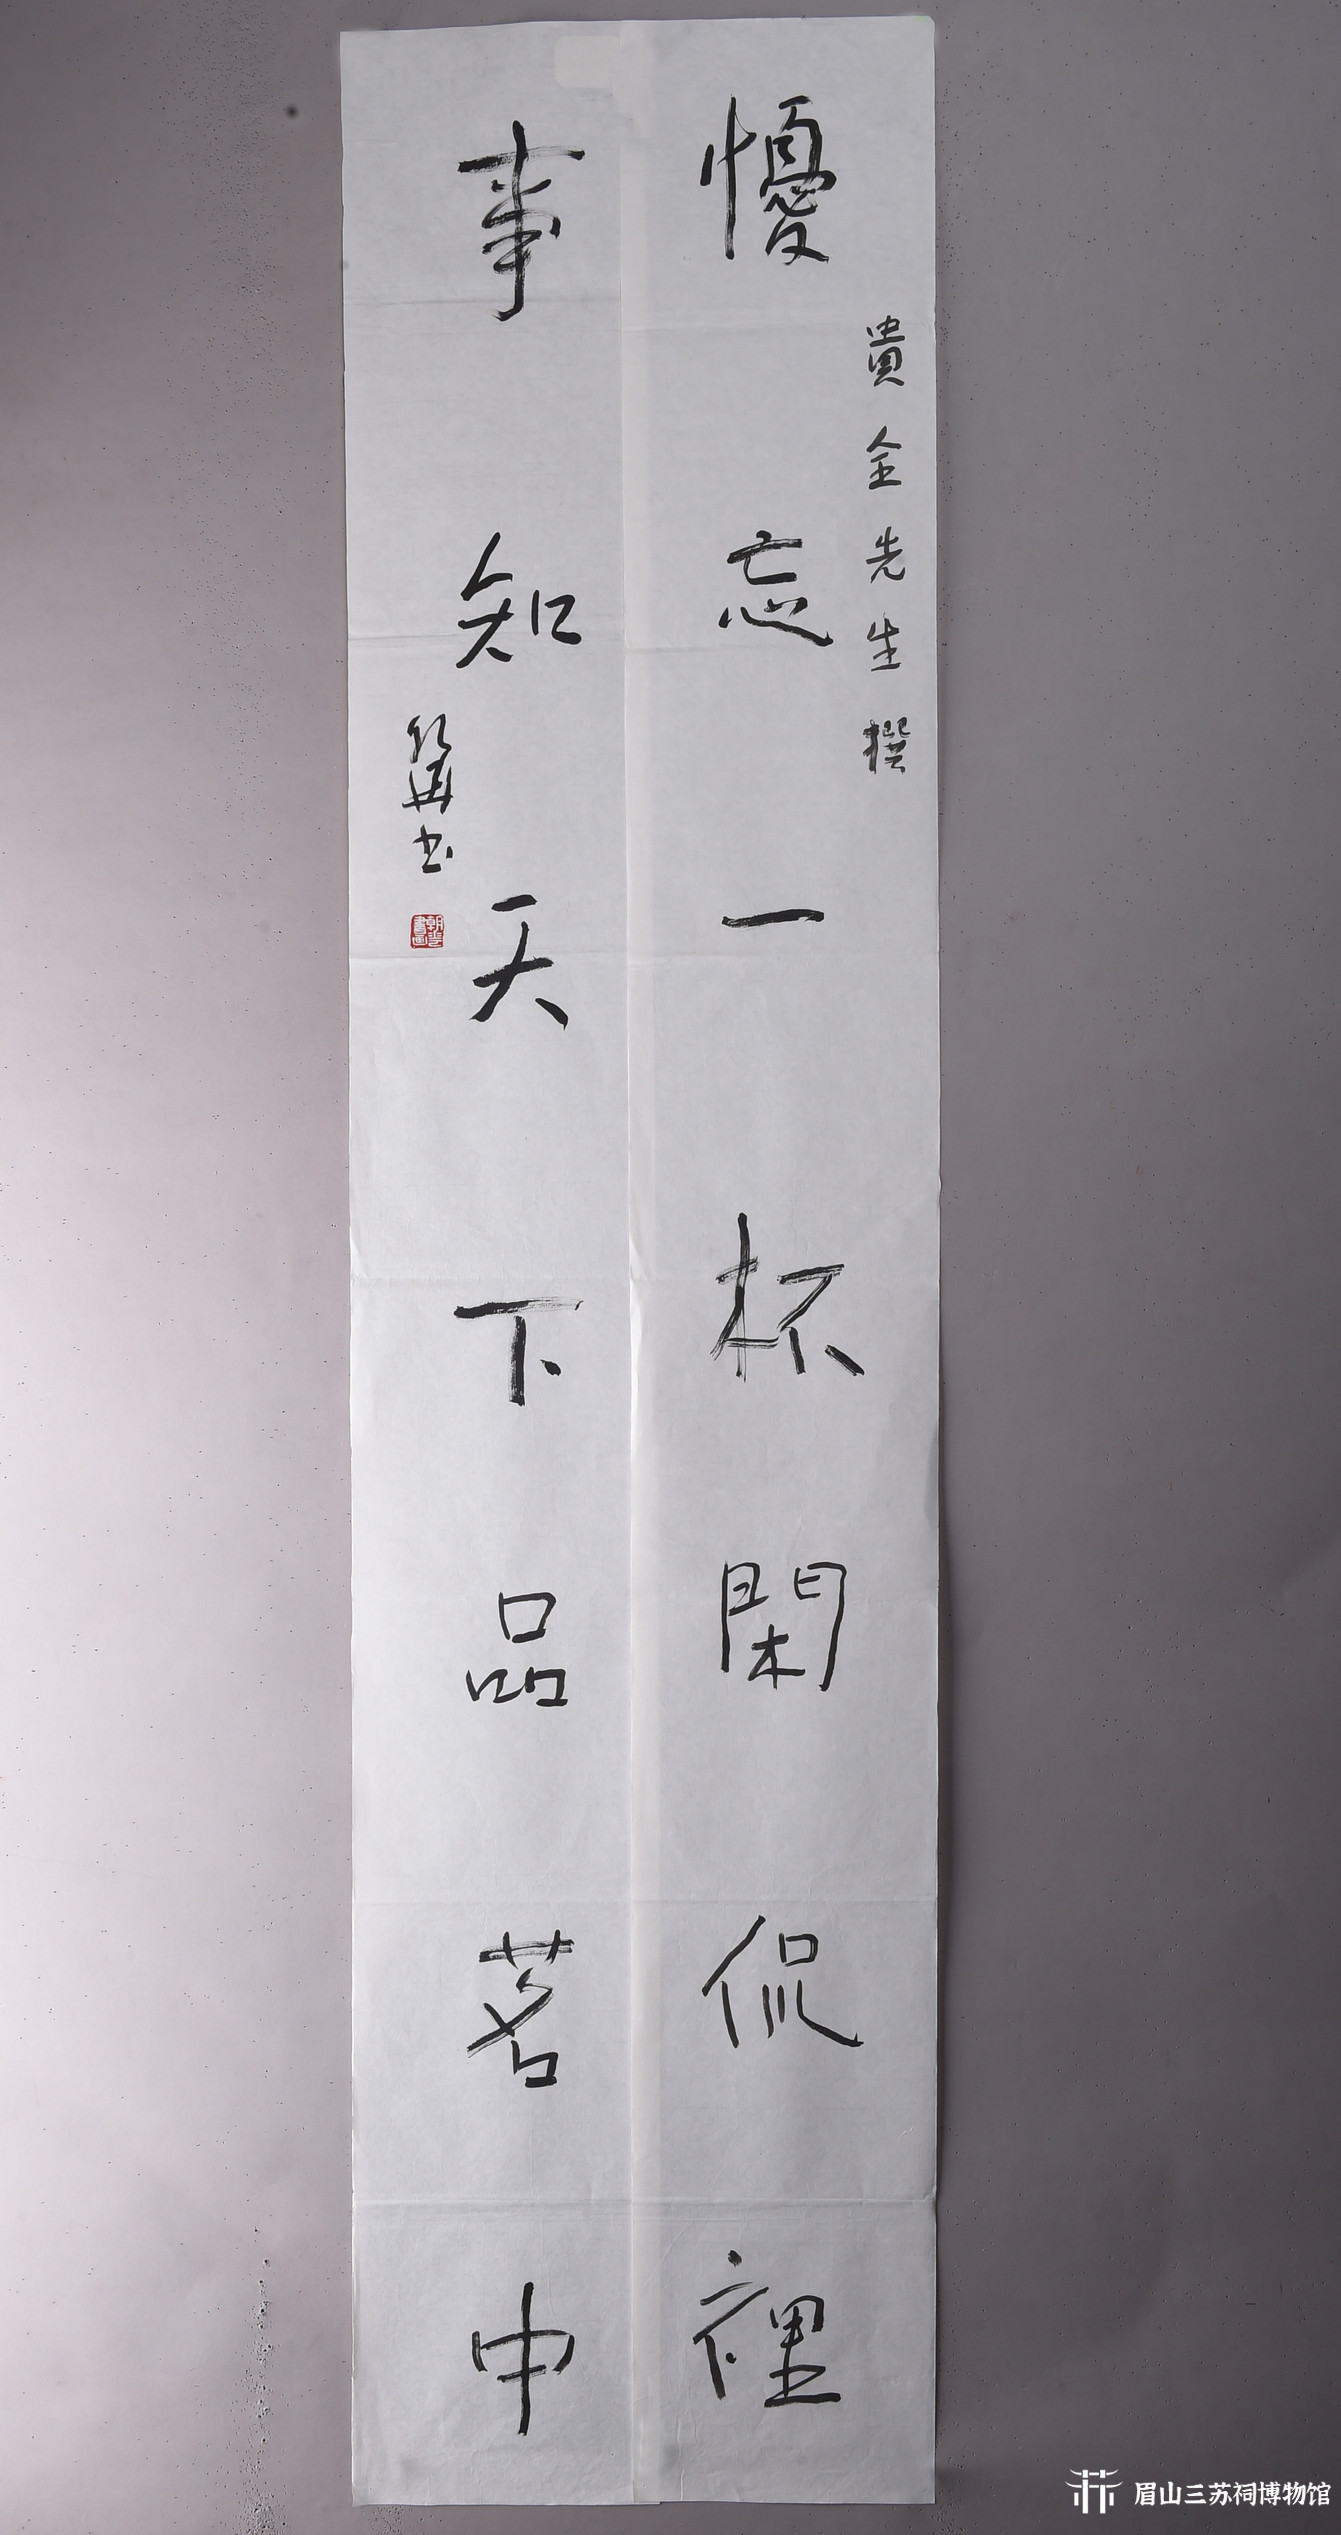 貴全先生撰
懮忘一杯閑侃裡
事知天下品茗中
書
眉山三苏祠博物馆